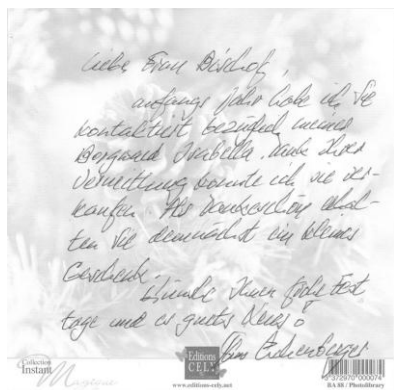 Liebe Frau Bischof,
anfangs Jahr habe ich Sie
kontaktiert bezüglich meines
Borgward Isabella. Dank Ihrer
Vermittlung konnte ich sie ver-
kaufen. Als Dankeschön erhal-
ten Sie demnächst ein kleines
Geschenk.
Wünsche Ihnen frohe Fest
tage und es guets Neus!
Collection
Instant
Magique
Editions
CELY
www.editions-cely.net
BA 88 / Photolibrary
3 372970 000074